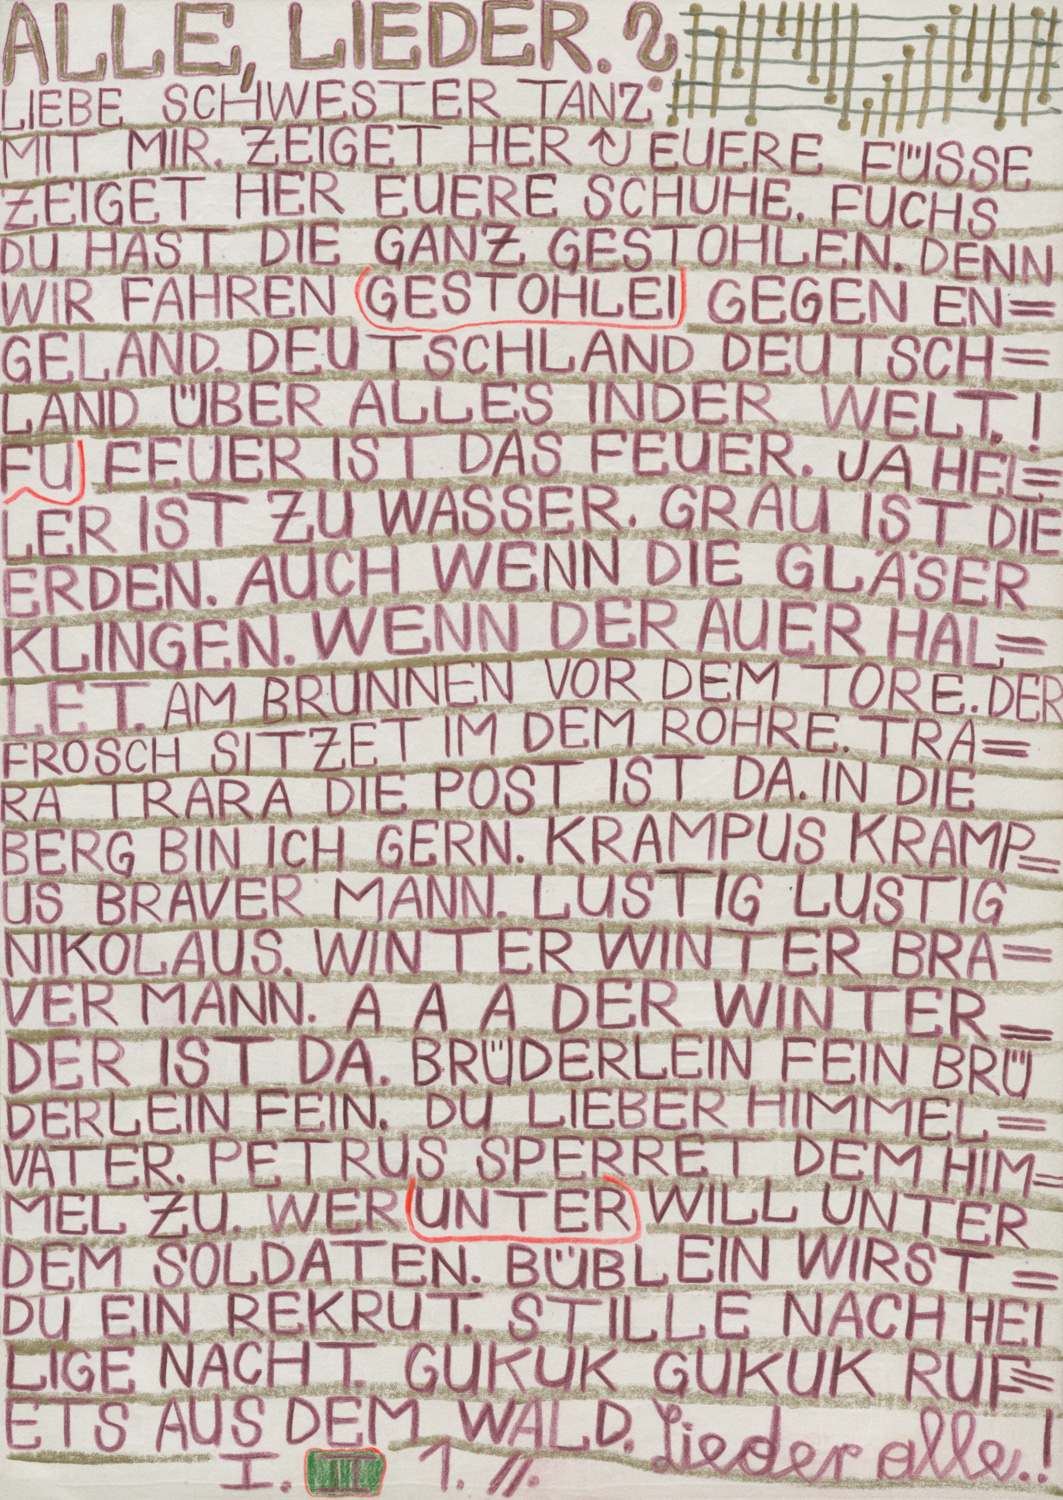 ALLE, LIEDER.?
LIEBE SCHWESTER TANZ
MIT MIR. ZEIGET HER EUERE FÜSSE
ZEIGET HER EUERE SCHUHE. FUCHS
DU HAST DIE GANZ GESTOHLEN. DENN
WIR FAHREN (GESTOHLEI) GEGEN EN=
GELAND. DEUTSCHLAND DEUTSCH=
LAND ÜBER ALLES INDER WELT.!
FU FEUER IST DAS FEUER. JA HEL=
LER IST ZU WASSER. GRAU IST DIE
ERDEN. AUCH WENN DIE GLÄSER
KLINGEN. WENN DER AUER HAL=
LET. AM BRUNNEN VOR DEM TORE. DER
FROSCH SITZET IM DEM ROHRE. TRA=
RA TRARA DIE POST IST DA. IN DIE
BERG BIN ICH GERN. KRAMPUS KRAMP=
US BRAVER MANN. LUSTIG LUSTIG
NIKOLAUS. WINTER WINTER BRA=
VER MANN. A A A DER WINTER =
DER IST DA. BRÜDERLEIN FEIN BRÜ
DERLEIN FEIN. DU LIEBER HIMMEL=
VATER. PETRUS SPERRET DEM HIM=
MEL ZU. WER (UNTER) WILL UNTER
DEM SOLDATEN. BÜBLEIN WIRST =
DU EIN REKRUT. STILLE NACH HEI
LIGE NACHT. GUKUK GUKUK RUF=
ETS AUS DEM WALD. Lieder alle..!
I. II 1. //.